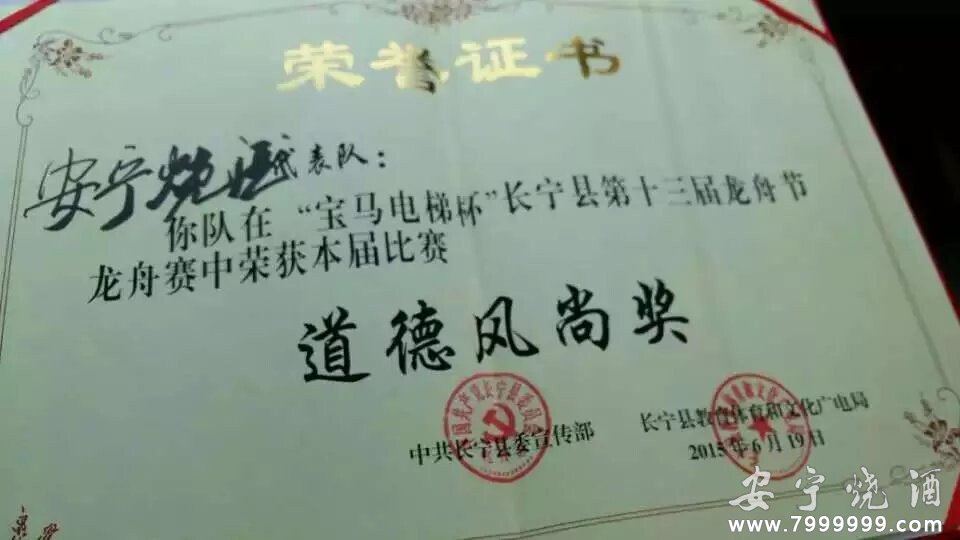 荣誉证书
安宁烧酒代表队：
你队在“宝马电梯杯”长宁县第十三届龙舟节
龙舟赛中荣获本届比赛
道德风尚奖
中共长宁县委宣传部
长宁县教育体育和文化广电局
2015年6月19日
安宁烧酒
www.7999999.com